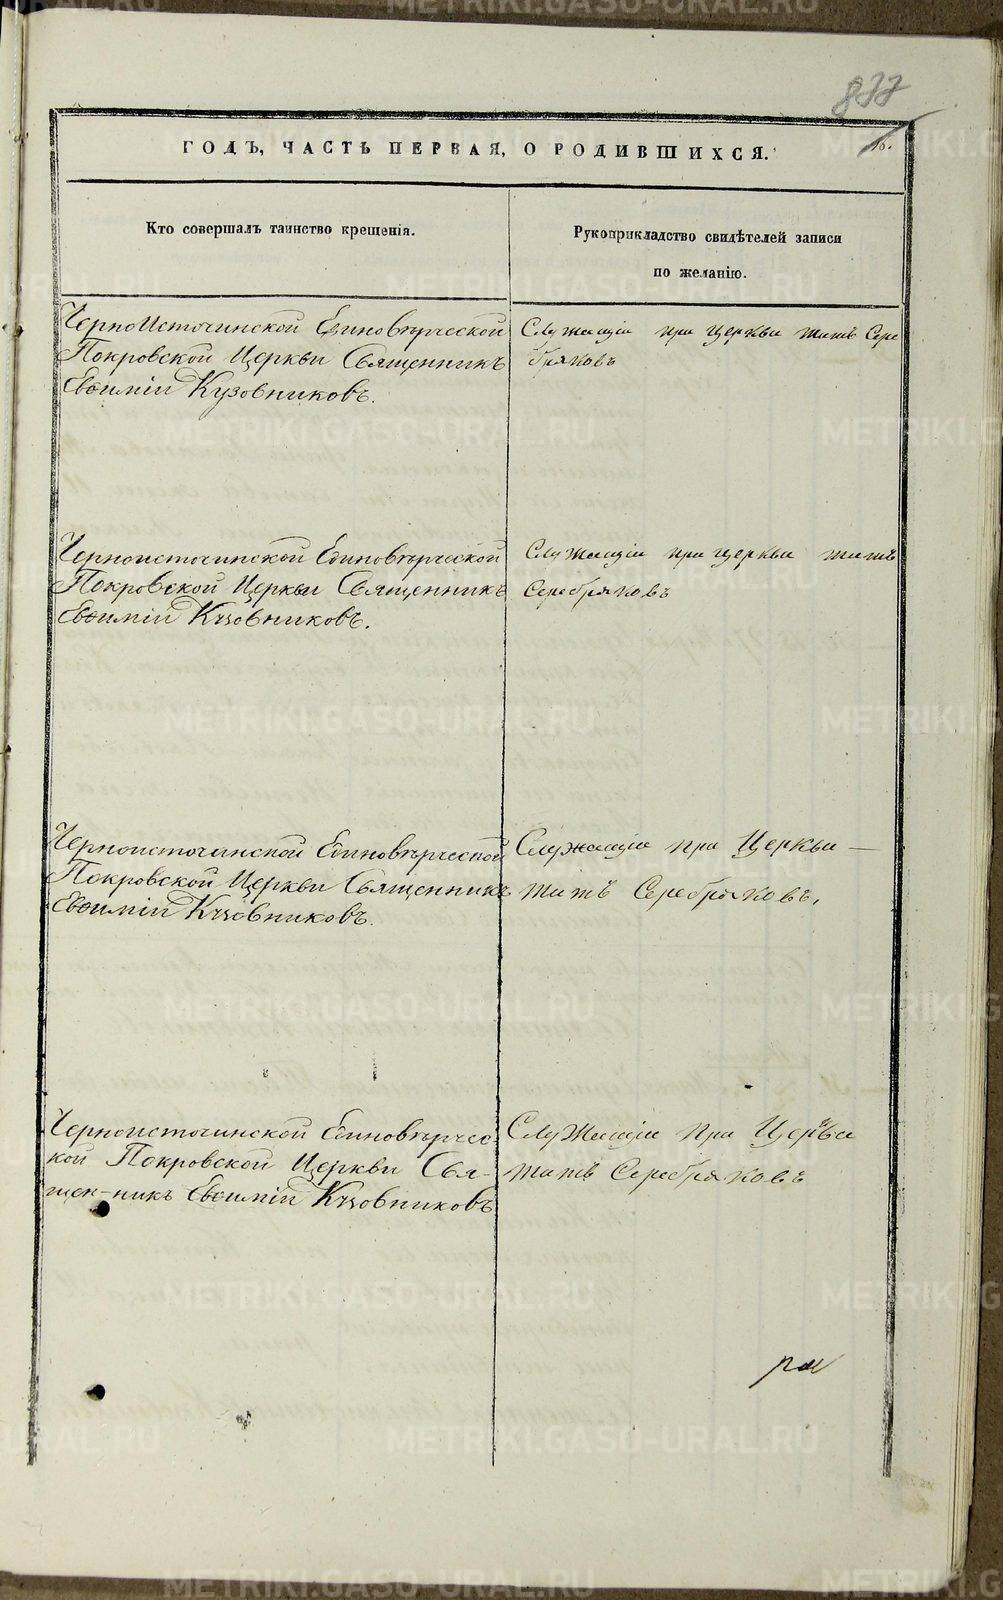 877
16.
ГОДЪ, ЧАСТЬ ПЕРВАЯ, О РОДИВШИХСЯ.
Кто совершалъ таинство крещенія.
Рукоприкладство свидѣтелей записи
по желанію.
ЧерноИсточинской Единовѣрческой
Покровской Церкви Священникъ
Евѳимій Кузовниковъ.
Служащій при церкви Титъ Сере
бряковъ
Черноисточинской Единовѣрческой
Покровской Церкви Священникъ
Евѳимій Кузовниковъ.
Служащій при церкви Титъ
Серебряковъ
Черноисточинской Единовѣрческой
Покровской Церкви Священникъ
Евѳимій Кузовниковъ.
Служащій при Церкви —
Титъ Серебряковъ.
Черноисточинской Единовѣрчес
кой Покровской Церкви Свя-
щен-никъ Евѳимій Кузовниковъ
Служащій при Церкви
Титъ Серебряковъ
METRIKI.GASO-URAL.RU